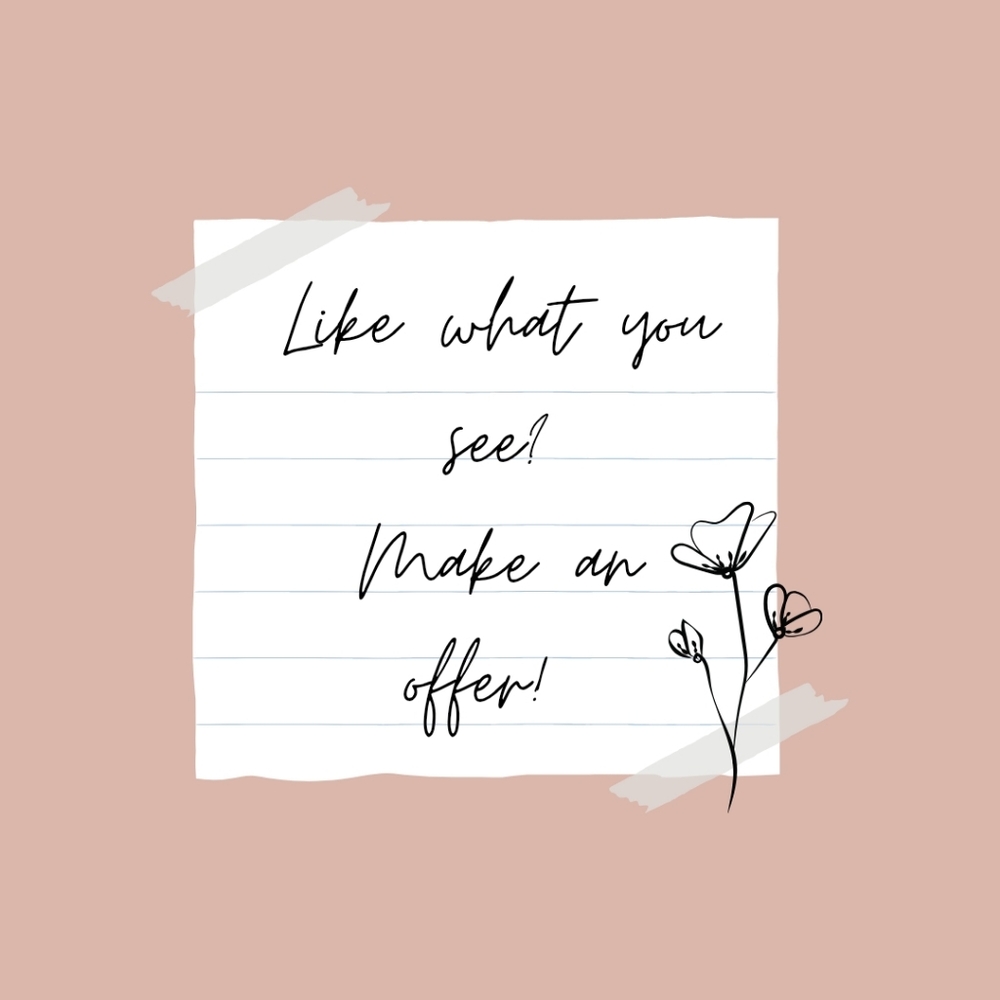 Like what you
see?
Make an
offer!